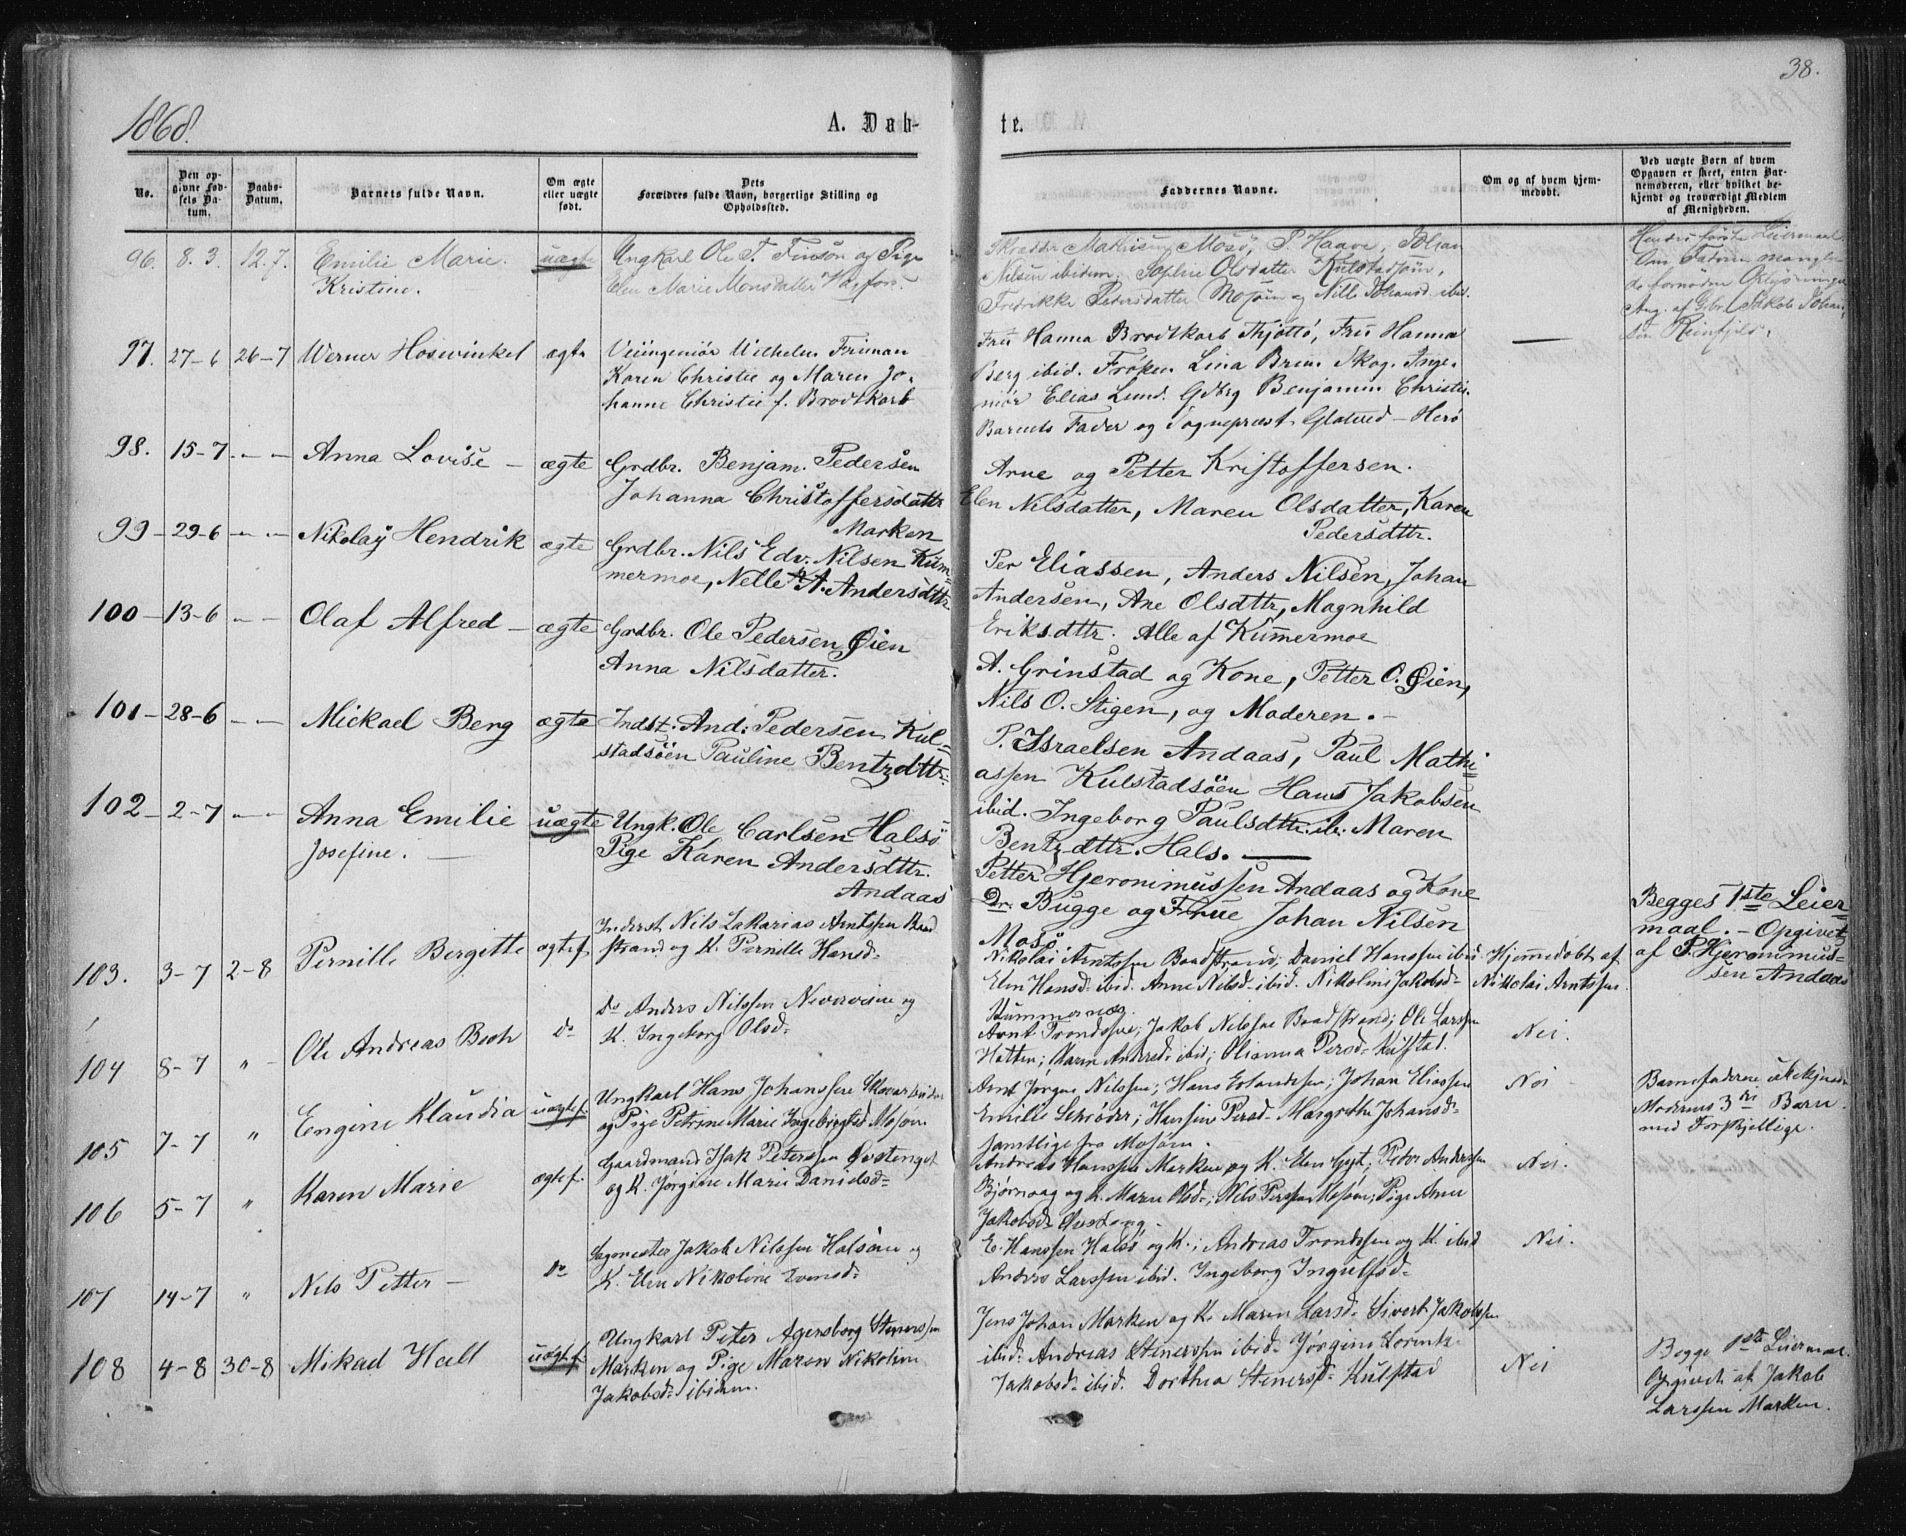 38.
1868.
A. Døb-
te.
No.
Den op-
givne Fød-
sels Da-
tum.
Daabs-
Datum.
Barnets fulde Navn.
Om ægte
eller uægte
født.
Dets
Forældres fulde Navn, borgerlige Stilling og
Opholdssted.
Faddernes Navne.
Om og af hvem hjem-
medøbt.
Ved uægte Børn af hvem
Opgaven er skeet, enten Bar-
nemoderen, eller hvilket be-
kjendt og troværdigt Medlem
af Menigheden.
96. 8. 3. 12. 7. Emilie Marie
Kristine.
uægte
Ungkarl Ole T. Finsön og Pige
Elen Marie Monsdatter
Mosö, P. Haave, Johan
Nilsen ibidem. Sophie Olsdatter Kulstadsjöen,
Fredrikke Pedersdatter Mosjöen og Nille ibid.
Hendes første Leiermaal.
Om Faderen mangle
de fornødne Oplysninger
Ang. af Gbr. Jakob Johan
sen Reinfjeld.
97. 27-6 26-7 Werner Hosewinkel
ægte
Veiingeniör Wilhelm Friman
Koren Christie og Maren Jo-
hanne Christie f. Brodtkorb
Frü Hanna Brodtkorb Thjöttö, Frü Hanna
Berg ibid. Fröken Lina Brun Skog. Inge-
niör Elias Lund. Gdbrg Benjamin Christie.
Barnets Fader og Sognepræst Glatved - Herö
—
98. 15-7 - - Anna Lovise -
ægte
Grdbr. Benjam. Pedersen
Johanna Christoffersdattr
Marken
Arne og Petter Kristoffersen.
Elen Nilsdatter, Maren Olsdatter, Karen
Pedersdttr.
99 - 29-6 - - Nikolaÿ Hendrik
ægte
Grdbr. Nils Edv. Nilsen Küm-
mermoe, Nelle A. Andersdttr
Per Eliassen, Anders Nilsen, Johan
Andersen, Ane Olsdttr, Magnhild
Eriksdttr. Alle af Kümermoe
100 - 13-6 - - Olaf Alfred -
ægte
Grdbr. Ole Pedersen Øien
Anna Nilsdatter.
A. Grinstad og Kone, Petter O. Øien,
Nils O. Stigen, og Moderen. -
101 - 28-6 - - Mickael Berg
ægte
Indst. And. Pedersen Kul-
stadsöen Pauline Bentzdttr.
P. Israelsen Andaas, Paul Mathi-
assen Kulstadsöen Hans Jakobsen
ibid. Ingeborg Paulsdttr. ib. Maren
Bentzdttr. Hals. —
102 - 2-7 - - Anna Emilie
Josefine. —
uægte
Ungk. Ole Carlsen Halsö
Pige Karen Andersdttr.
Andaas
Petter Hjeronimussen Andaas og Kone
Dr. Bugge og Frue Johan Nilsen
Mosö.
Begges 1ste Leier-
maal. - Opgivet
af P. Hjeronimus-
sen Andaas
103. 3-7 2-8 Pernille Bergitte
ægte f.
Inderst Nils Zakarias Arntssen Baad
strand og K. Pernille Hansd-
Nikolai Arntssen Baadstrand; Daniel Hanssen ibid.
Elen Hansd- ibid. Anne Nilsd- ibid. Nikoline Jakobsd-
Hjemmedøbt af
Nikolai Arntssen.
104 8-7 " - Ole Andreas Bech
do
do Anders Nilssen Nevervine og
K. Ingeborg Olsd-
Arnt Trondssen; Jakob Nilssen Baadstrand; Ole Larssen
Hatten; Maren Andersd- ibid; Olianna Persd- Kulstad.
Nei.
105 7-7 " Engine Klaudia
uægte f.
Ungkarl Hans Johanssen
og Pige Petrine Marie Ingebrigtsd Mosøen
Amt Jørgen Nilssen; Hans Erlandssen; Johan Eliassen
Emilie Schröder; Hansine Persd- Margrethe Johansd-
samtlige fra Mosøen.
Nei
Barnefaderen ubekjendt
Moderens 3die Barn
med Forskjellige.
106 5-7 " Karen Marie
ægte f.
Gaardmand Isak Peterssen
og K. Jørgine Marie Danielsd-
Andreas Hanssen Marken og K. Elen Gyt; Peter Anderssen
Bjørnaag og K. Maren Olsd-; Nils Perssen Mosøen; Pige Anne
Jakobsd-
Nei.
107 14-7 " Nils Petter -
do
Sagmester Jakob Nilssen Halsøen og
K. Elen Nikoline Evensd-
E. Hanssen Halsø og K.; Andreas Trondssen og K. ibid
Anders Larssen ibid. Ingeborg Ingulfsd-
Nei.
108 4-8 30-8 Mikael Hall
uægte f.
Ungkarl Peter Agersborg Stenerssen
Marken og Pige Maren Nikoline
Jakobsd- ibidem.
Jens Johan Marken og K. Maren Larsd- Sivert Jakobssen
ibid- Andreas Stenerssen ibid- Jørgine Lorentz
Jakobsd- ibid. Dorthea Stenersd- Kulstad
Nei
Begge 1ste Leiermaal.
Opgivet af Jakob
Larssen Marken.